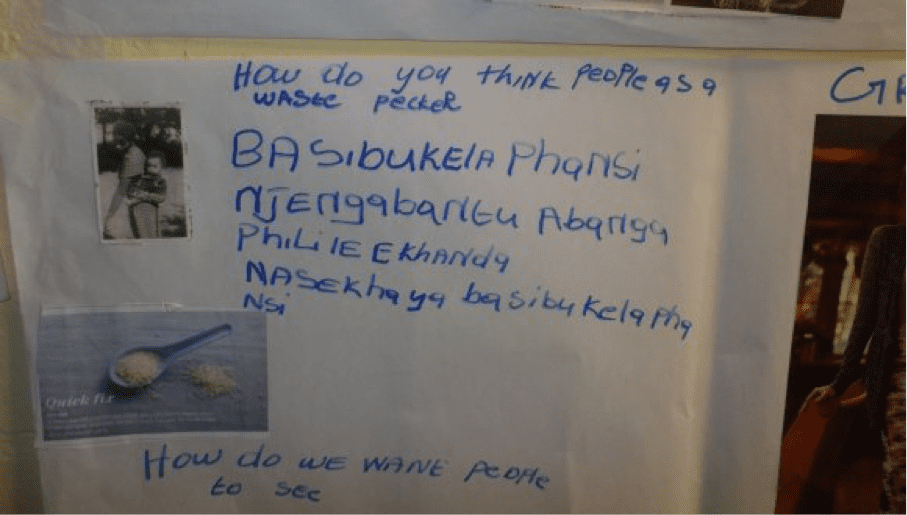 How do you think people as a
waste pecker
BASibuKElA PhANSi
NJENgabaNtu AbaNga
PhiLiIE EKhANda
NASEKhaya basibuKela Pha
NSi
Quick fix
How do we want people
to see